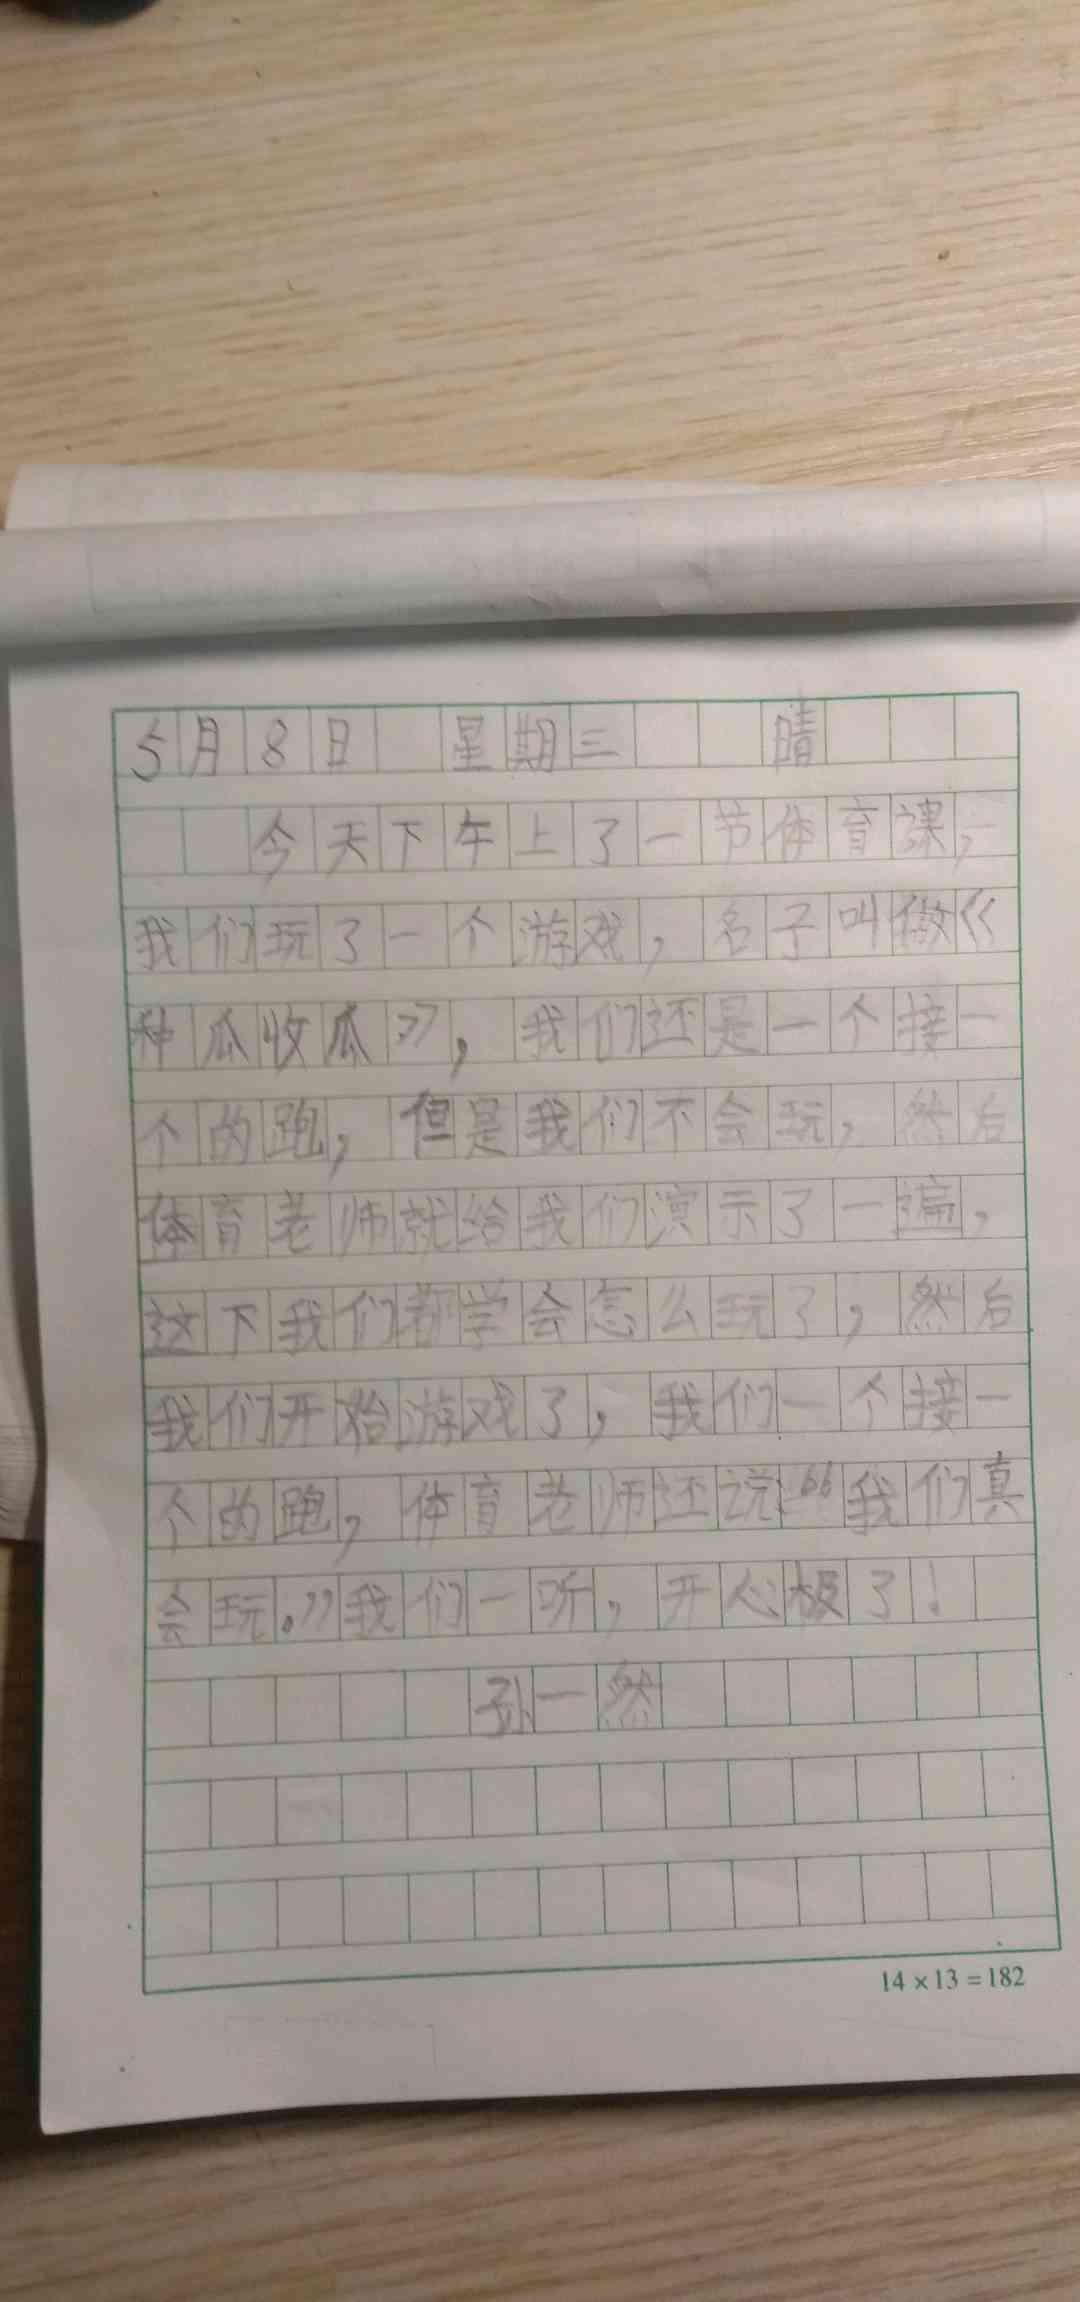 5月8日 星期三 晴
今天下午上了一节体育课，
我们玩了一个游戏，名子叫做《
种瓜收瓜》，我们还是一个接一
个的跑，但是我们不会玩，然后
体育老师就给我们演示了一遍，
这下我们都学会怎么玩了，然后
我们开始游戏了，我们一个接一
个的跑，体育老师还说：“我们真
会玩。”我们一听，开心极了！
孙一然
14×13=182